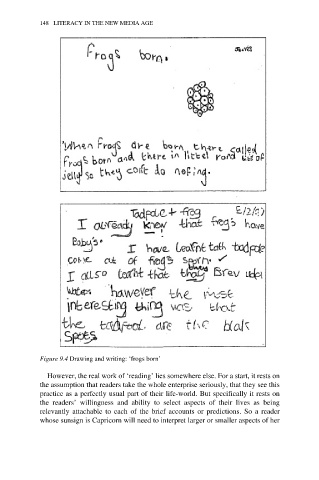 148 LITERACY IN THE NEW MEDIA AGE
frogs born.
When frogs are born there called
frogs born and there in littel rond bits of
jelly so they cont do nofing.
Tadpole + frog
I already knew that frog's have
Baby's. I have learnt tath tadpole
come out of frog's sporn ✓
I allso larnt that they Brev
however the most
interesting thing was that
the tadpool are the blak
Spots
Figure 9.4 Drawing and writing: 'frogs born'
However, the real work of 'reading' lies somewhere else. For a start, it rests on
the assumption that readers take the whole enterprise seriously, that they see this
practice as a perfectly usual part of their life-world. But specifically it rests on
the readers' willingness and ability to select aspects of their lives as being
relevantly attachable to each of the brief accounts or predictions. So a reader
whose sunsign is Capricorn will need to interpret larger or smaller aspects of her